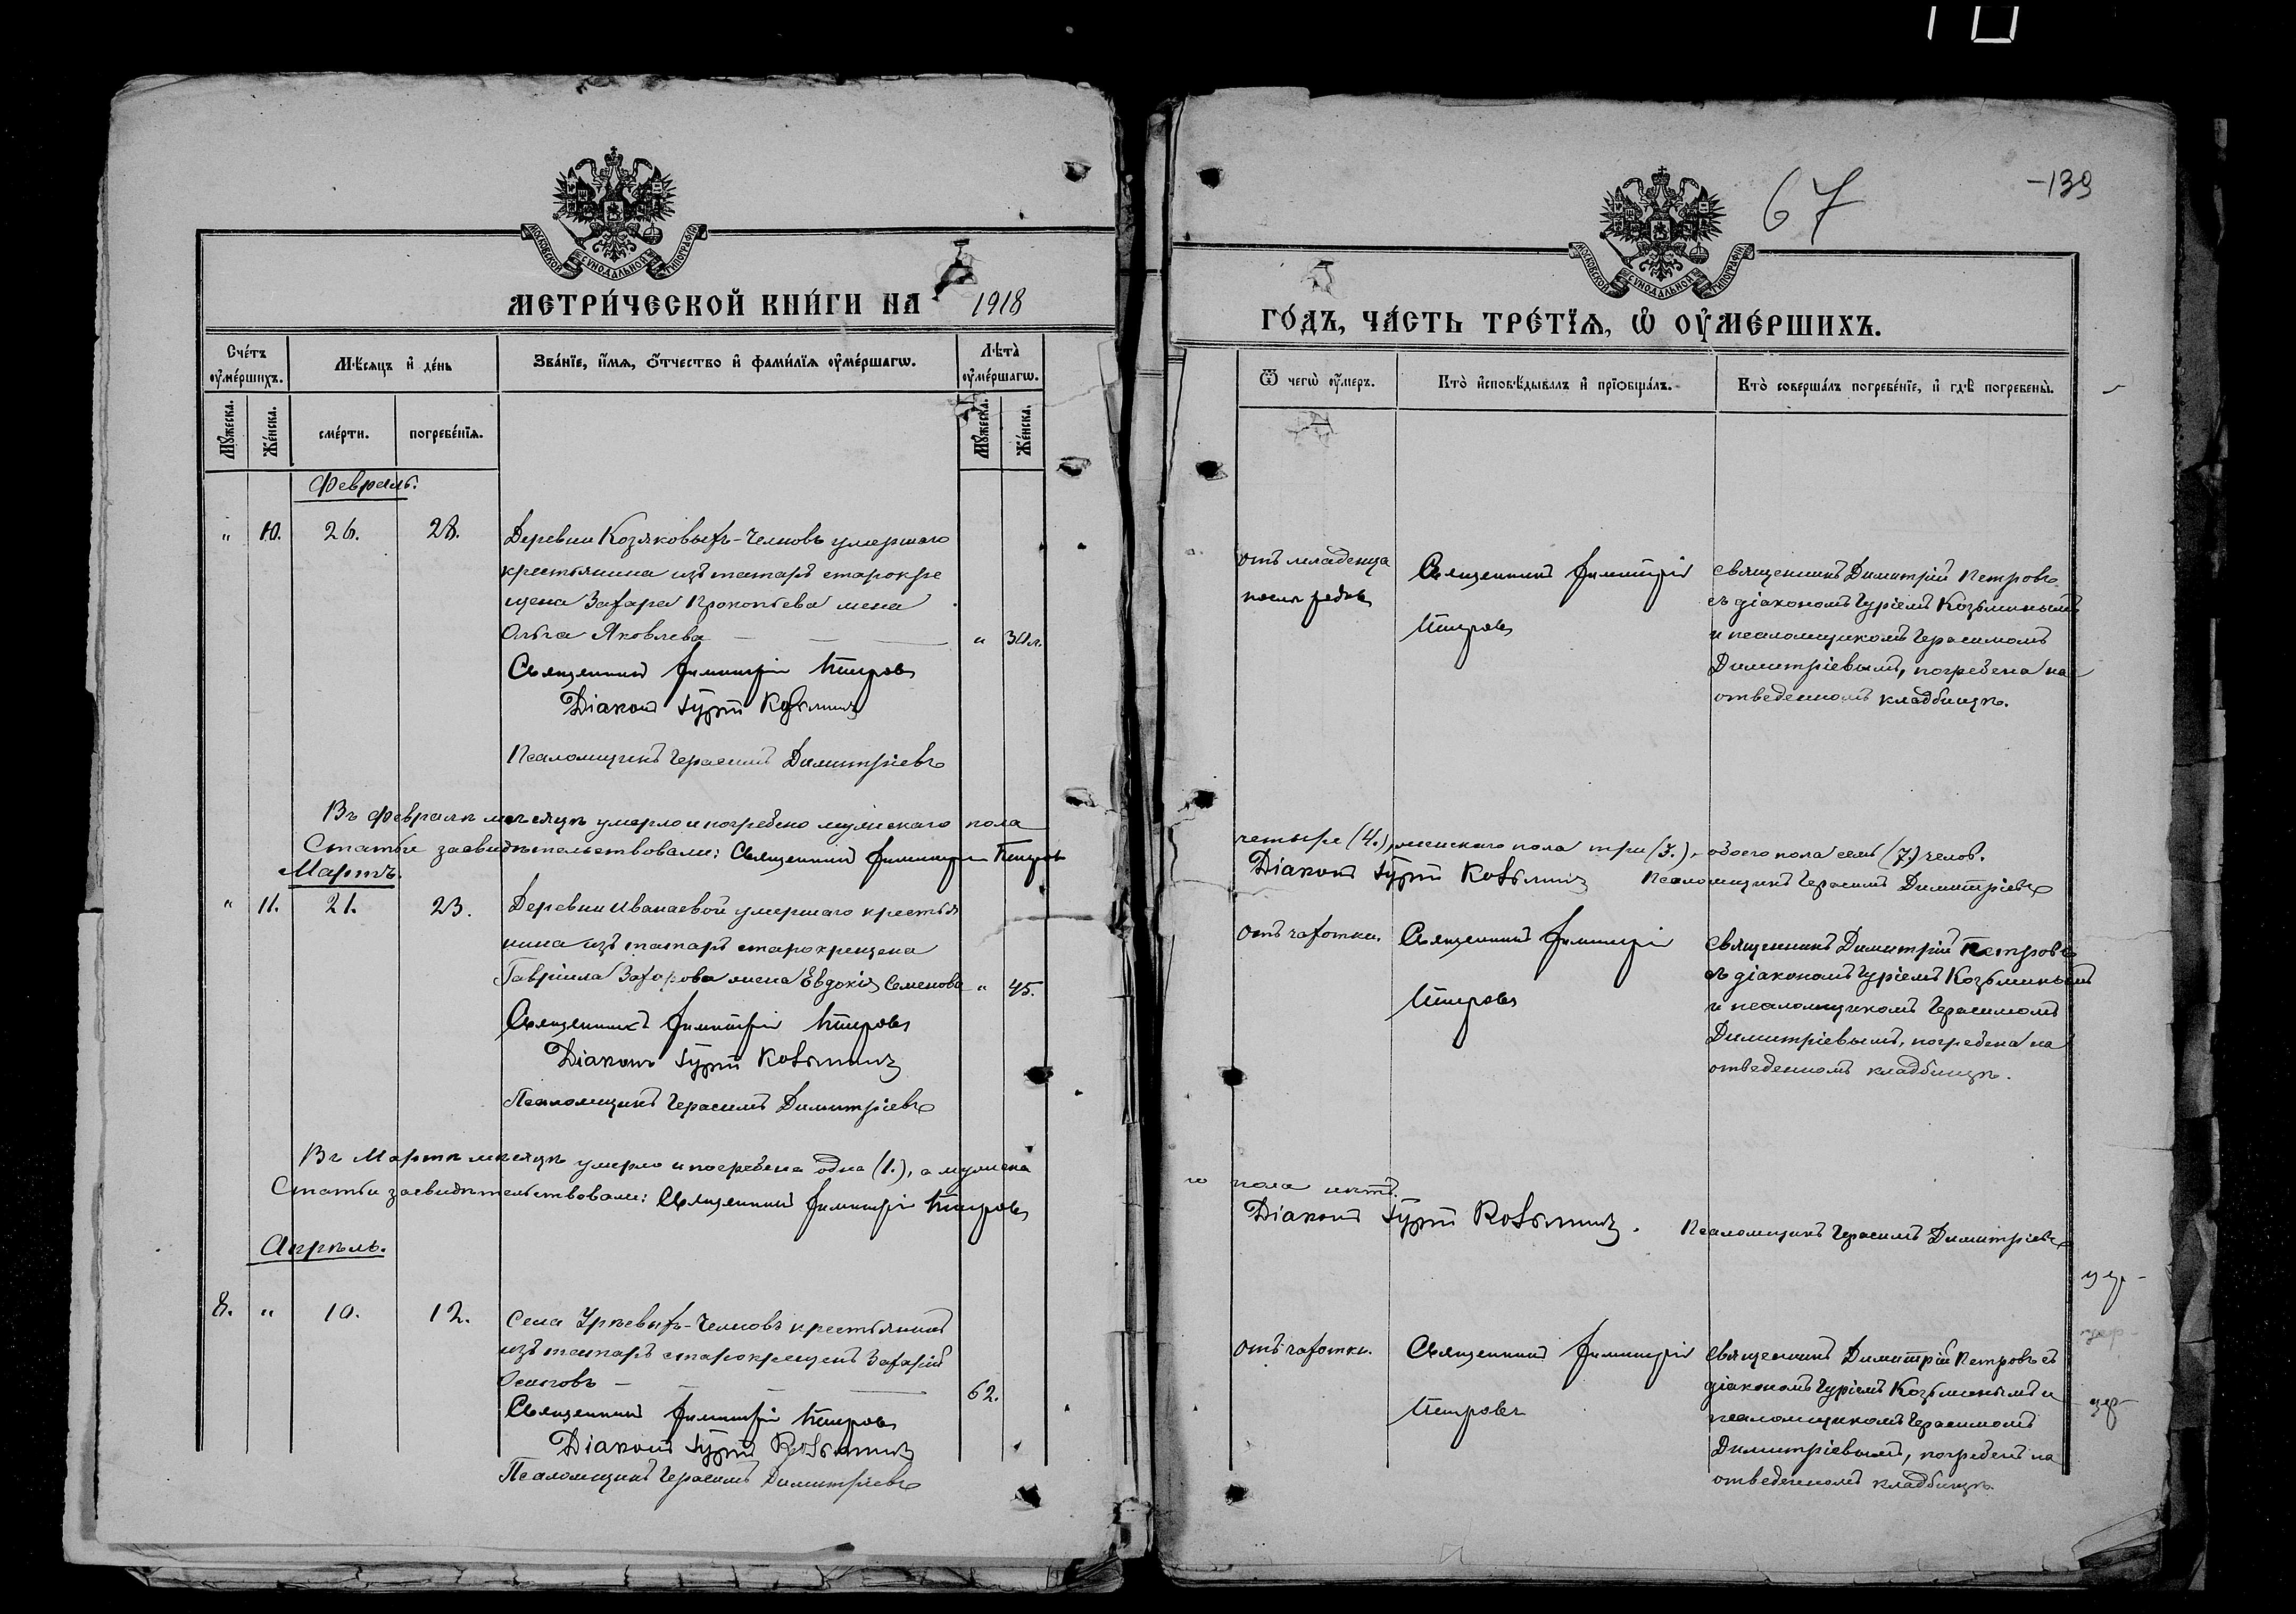 67
-139
МОСКОВСКОЙ СУНОДАЛЬНОЙ ТИПОГРАФІИ
МЕТРИ́ЧЕСКОЙ КНИ́ГИ НА 1918
Сче́тъ ᲂу҆ме́ршихъ.
Мѣ́сяцъ и҆ де́нь
Зва́нїе, и҆́мѧ, ѻ҆́тчество и҆ фами́лїѧ ᲂу҆ме́ршагѡ.
Лѣ́та ᲂу҆ме́ршагѡ.
Мꙋ́жеска.
Же́нска.
сме́рти.
погребе́нїѧ.
Мꙋ́жеска.
Же́нска.
Февраль.
" 10. 26. 28.
Деревни Козяковыхъ-Челновъ умершаго
крестьянина изъ татаръ старокре
щена Захара Прокопьева жена
Ольга Яковлева — — — " 30 л.
Священникъ Димитрій Петровъ
Діаконъ Гурій Козьминъ
Псаломщикъ Герасимъ Димитріевъ
Въ Февралѣ мѣсяцѣ умерло и погребено мужскаго пола
Статьи засвидѣтельствовали: Священникъ Димитрій Петровъ
Мартъ.
" 11. 21. 23.
Деревни Иванаевой умершаго крестья
нина изъ татаръ старокрещена
Гавріила Захарова жена Евдокія Семенова " 45.
Священникъ Димитрій Петровъ
Діаконъ Гурій Козьминъ
Псаломщикъ Герасимъ Димитріевъ
Въ Мартѣ мѣсяцѣ умерло и погребена одна (1.), а мужска
Статьи засвидѣтельствовали: Священникъ Димитрій Петровъ
Апрѣль.
8. " 10. 12.
Села Урѣевыхъ-Челновъ крестьянинъ
изъ татаръ старокрещенъ Захарій
Осиповъ — — — 62.
Священникъ Димитрій Петровъ
Діаконъ Гурій Козьминъ
Псаломщикъ Герасимъ Димитріевъ
МОСКОВСКОЙ СУНОДАЛЬНОЙ ТИПОГРАФІИ
ГО́ДЪ, ЧА́СТЬ ТРЕ́ТЇѦ, Ѡ҆ ОУ҆МЕ́РШИХЪ.
Ѿ чегѡ̀ ᲂу҆́меръ.
Кто̀ и҆сповѣ́дывалъ и҆ прїѻбща́лъ.
Кто̀ соверша́лъ погребе́нїе, и҆ гдѣ̀ погребены̀.
отъ младенца
послѣ родовъ
Священникъ Димитрій
Петровъ
Священникъ Димитрій Петровъ
съ діакономъ Гуріемъ Козьминымъ
и псаломщикомъ Герасимомъ
Димитріевымъ, погребена на
отведенномъ кладбищѣ.
четыре (4.), женскаго пола три (3.), обоего пола семь (7.) челов.
Діаконъ Гурій Козьминъ Псаломщикъ Герасимъ Димитріевъ
Отъ чахотки.
Священникъ Димитрій
Петровъ
Священникъ Димитрій Петровъ
съ діакономъ Гуріемъ Козьминымъ
и псаломщикомъ Герасимомъ
Димитріевымъ, погребена на
отведенномъ кладбищѣ.
го пола нѣтъ.
Діаконъ Гурій Козьминъ. Псаломщикъ Герасимъ Димитріевъ
Отъ чахотки.
Священникъ Димитрій
Петровъ
Священникъ Димитрій Петровъ съ
діакономъ Гуріемъ Козьминымъ и
псаломщикомъ Герасимомъ
Димитріевымъ, погребенъ на
отведенномъ кладбищѣ.